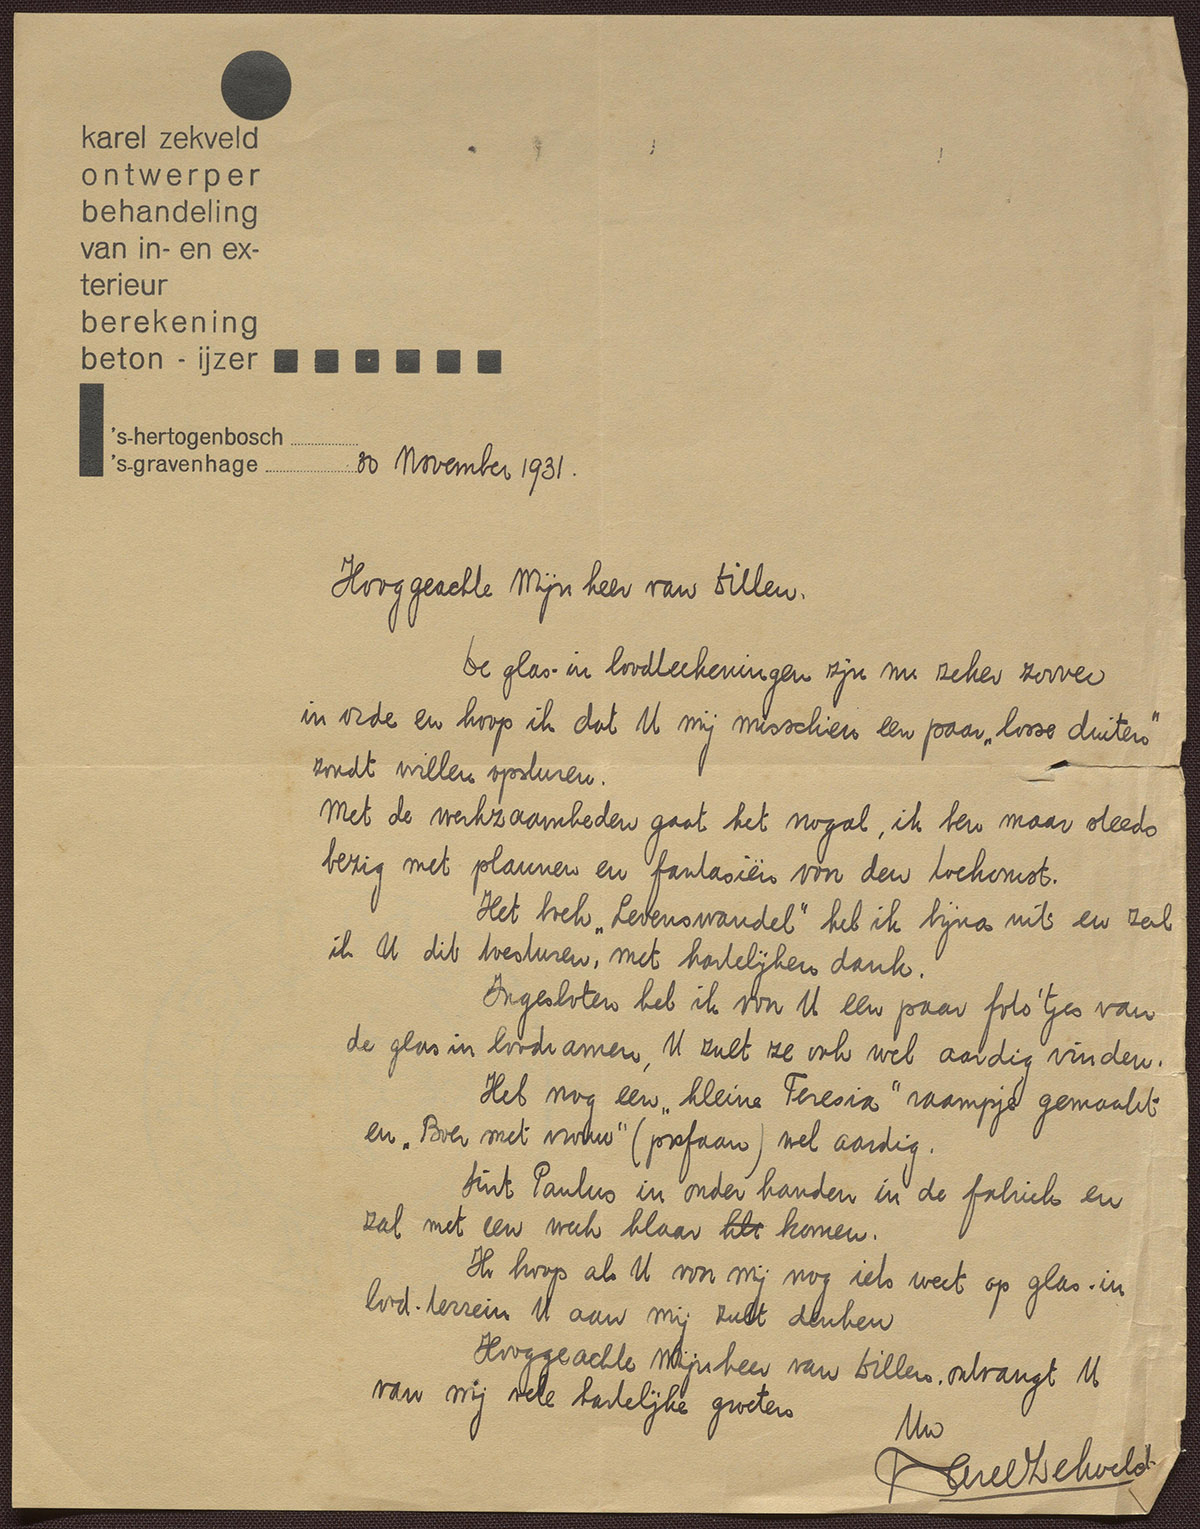 karel zekveld
ontwerper
behandeling
van in- en ex-
terieur
berekening
beton - ijzer
's-hertogenbosch
's-gravenhage 30 November 1931.
Hooggeachte Mijnheer van Dillen.
De glas-in loodteekeningen zijn nu zeker zoover
in orde en hoop ik dat U mij misschien een paar „losse duiten"
zoudt willen opsturen.
Met de werkzaamheden gaat het nogal, ik ben maar steeds
bezig met plannen en fantasiën van den toekomst.
Het boek „Levenswandel" heb ik bijna uit en zal
ik U dit toesturen, met hartelijken dank.
Ingesloten heb ik voor U een paar foto'tjes van
de glas in loodramen, U zult ze ook wel aardig vinden.
Heb nog een „kleine Teresia" raampje gemaakt
en „Boer met vrouw" (profaan) wel aardig.
Sint Paulus in onder handen in de fabriek en
zal met een week klaar komen.
Ik hoop als U voor mij nog iets weet op glas-in
lood-terrein U aan mij zult denken
Hooggeachte Mijnheer van Dillen, ontvangt U
van mij vele hartelijke groeten
Uw
Karel Zekveld